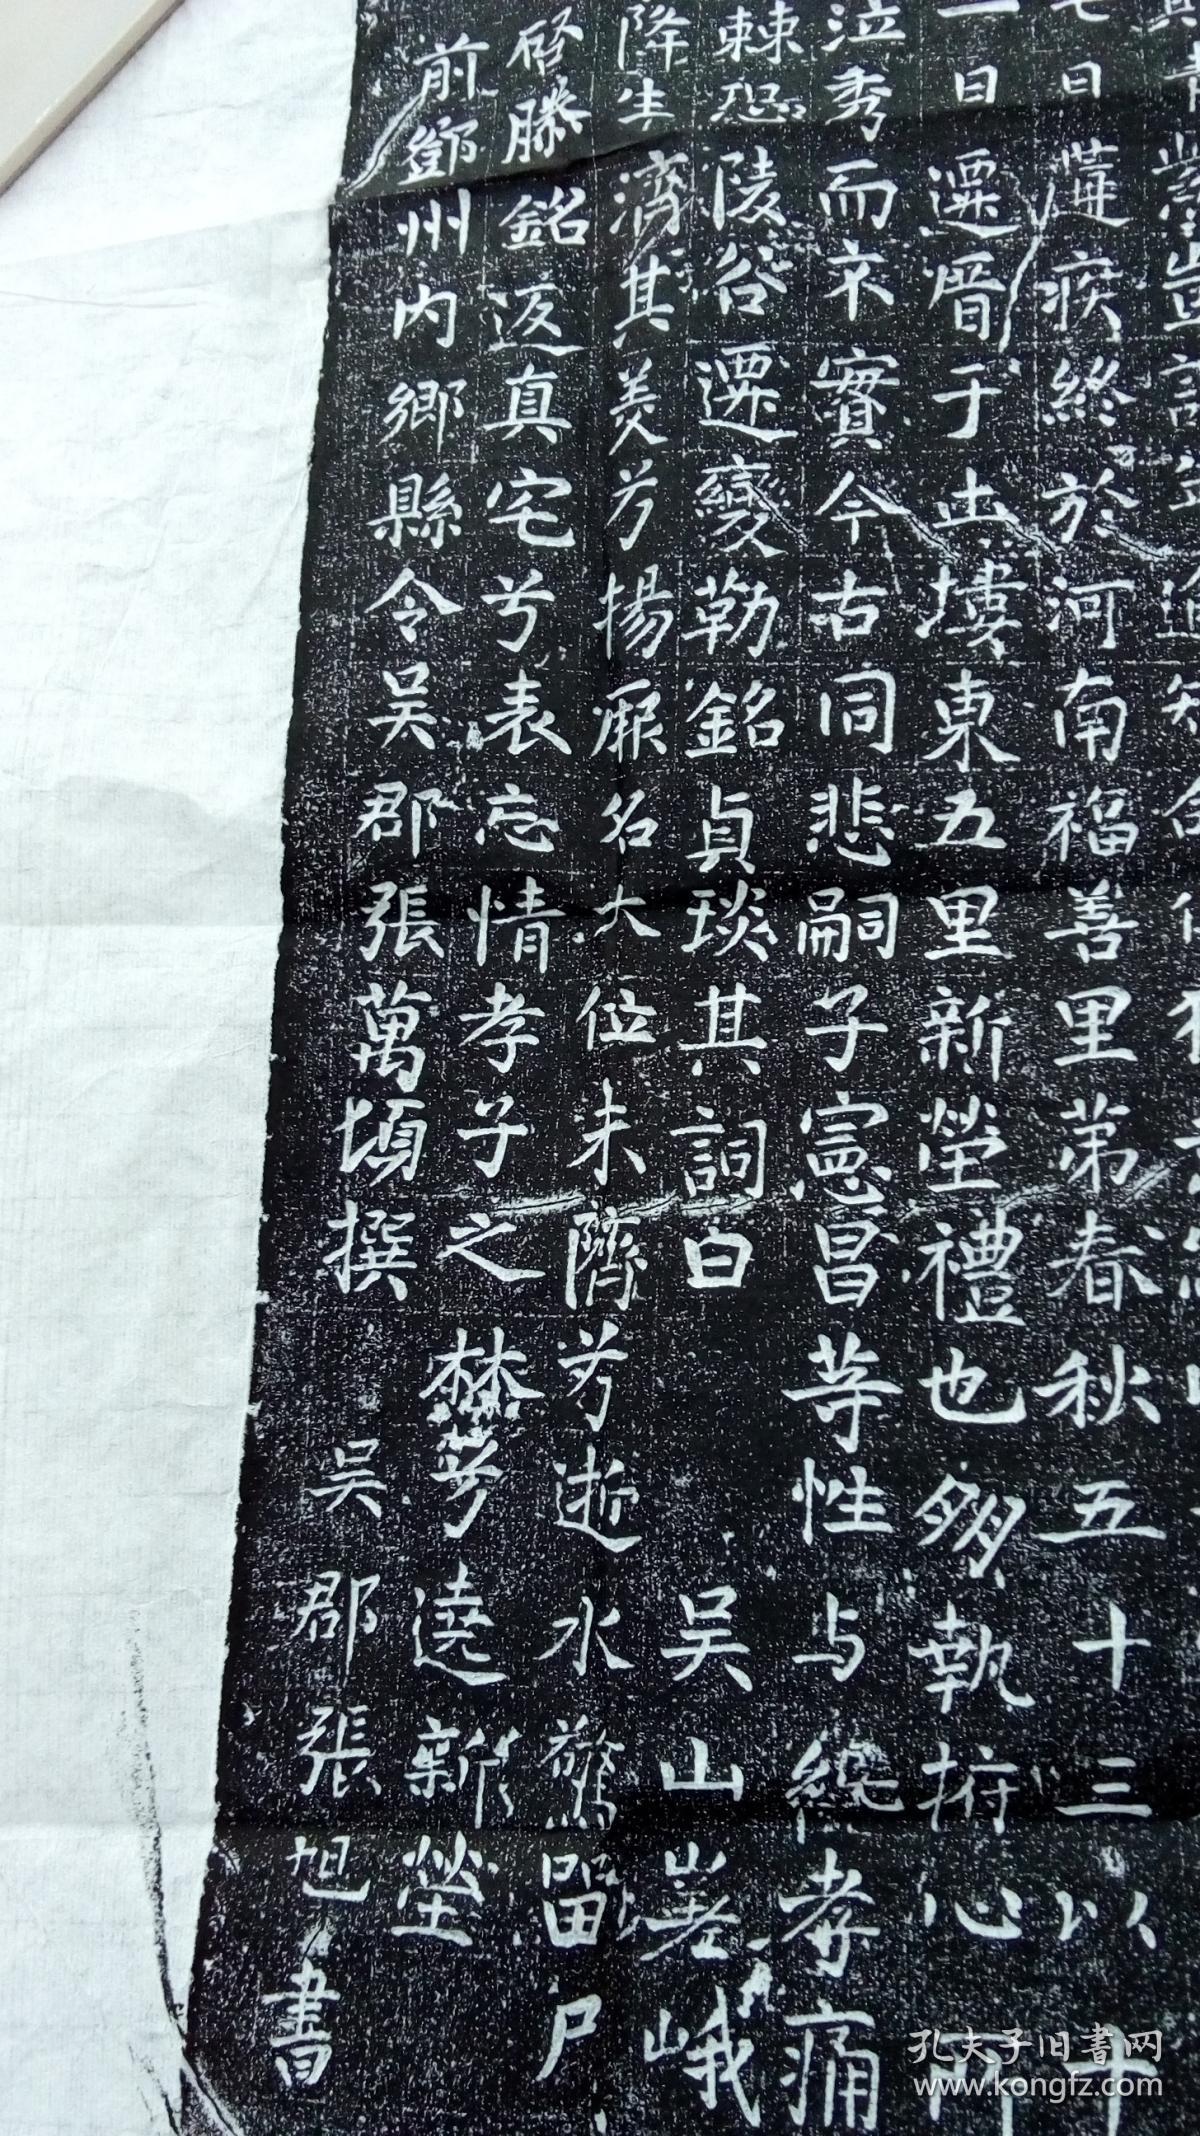 七日遘疾終於河南福善里第春秋五十三以
一日遷厝于土塿東五里新塋禮也多執
泣秀而不實今古同悲嗣子憲昌等性与 孝痛
棘恐陵谷遷變勒銘貞琰其詞曰 吴山 峨
降生濟其美兮揚厥名大位未隮兮逝水驚留戶
啓滕銘返真宅兮表忘情孝子之 兮遶新塋
前鄧州内鄉縣令吴郡張萬頃撰 吴郡張旭書
孔夫子旧书网
www.kongfz.com